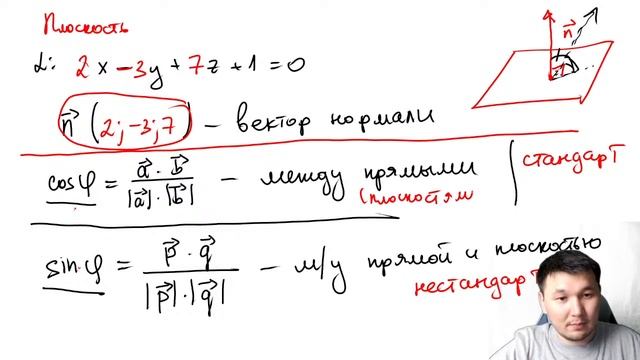 Плоскость
α: 2x - 3y + 7z + 1 = 0
n⃗ (2; -3; 7) - вектор нормали
n⃗
cos φ = a⃗ · b⃗ / |a⃗| · |b⃗| - между прямыми
(плоскостям
стандарт
sin φ = p⃗ · q⃗ / |p⃗| · |q⃗| - м/у прямой и плоскостью
нестандарт